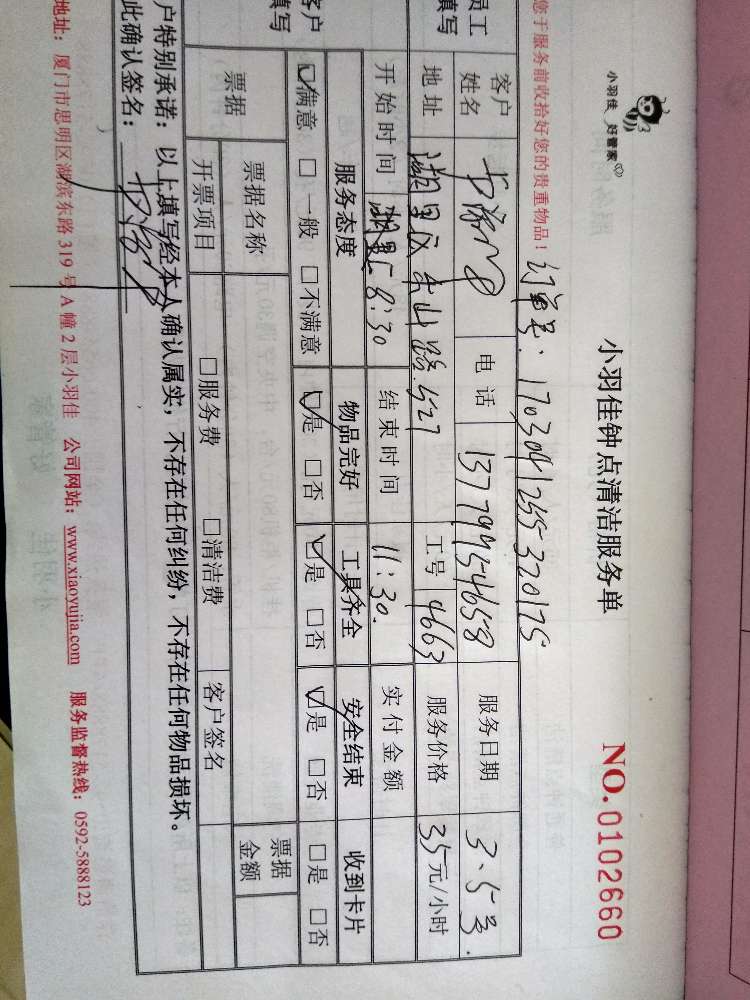 小羽佳 好管家
小羽佳钟点清洁服务单 NO.0102660
您于服务前收拾好您的贵重物品！ 订单号：170304125532017S
员工填写 客户姓名 电话 13779954658 服务日期 3.5号.
地址 湖里区 山路527 工号 4663 服务价格 35元/小时
开始时间 8:30 结束时间 11:30. 实付金额
客户填写 服务态度 物品完好 工具齐全 安全结束 收到卡片
☑满意 □一般 □不满意 ☑是 □否 ☑是 □否 ☑是 □否 □是 □否
票据 票据名称 票据金额
开票项目 □服务费 □清洁费 客户签名
户特别承诺：以上填写经本人确认属实，不存在任何纠纷，不存在任何物品损坏。
此确认签名：
地址：厦门市思明区湖滨东路 319 号 A 幢 2 层小羽佳 公司网站：www.xiaoyujia.com 服务监督热线：0592-5888123